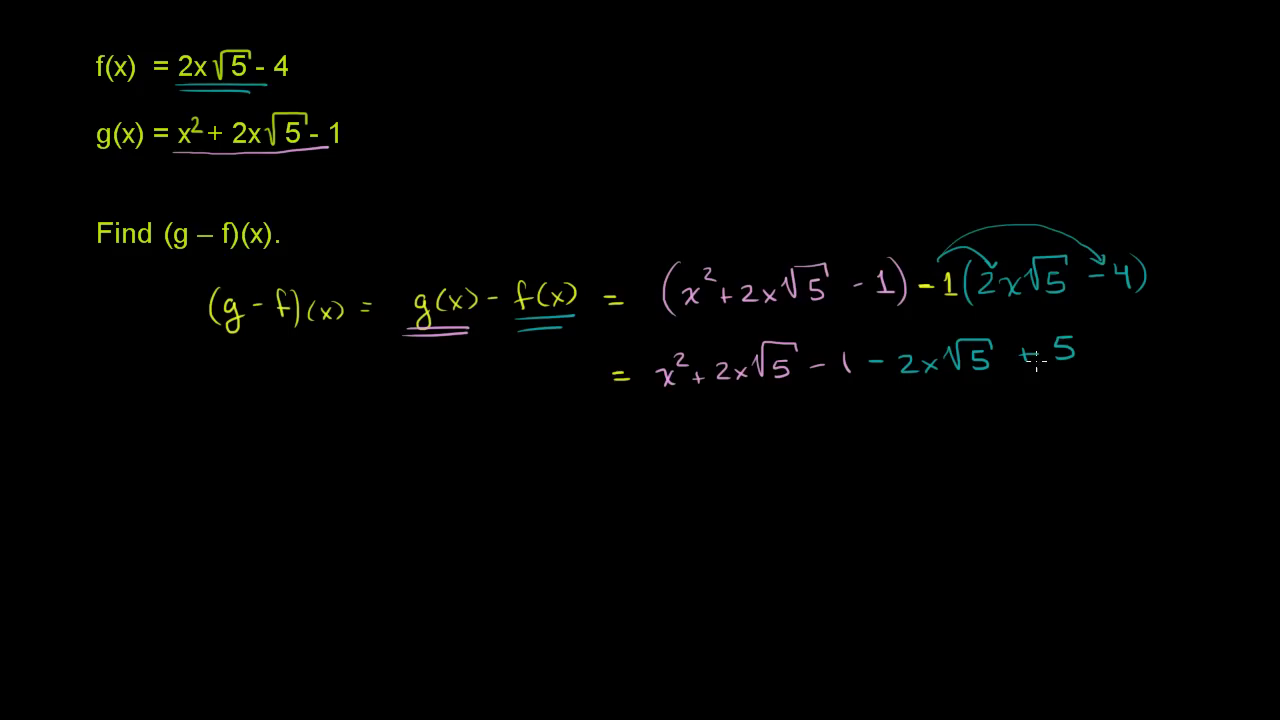 f(x) = 2x√5 - 4
g(x) = x² + 2x√5 - 1
Find (g – f)(x).
(g - f)(x) = g(x) - f(x) = (x² + 2x√5 - 1) - 1(2x√5 - 4)
= x² + 2x√5 - 1 - 2x√5 + 5